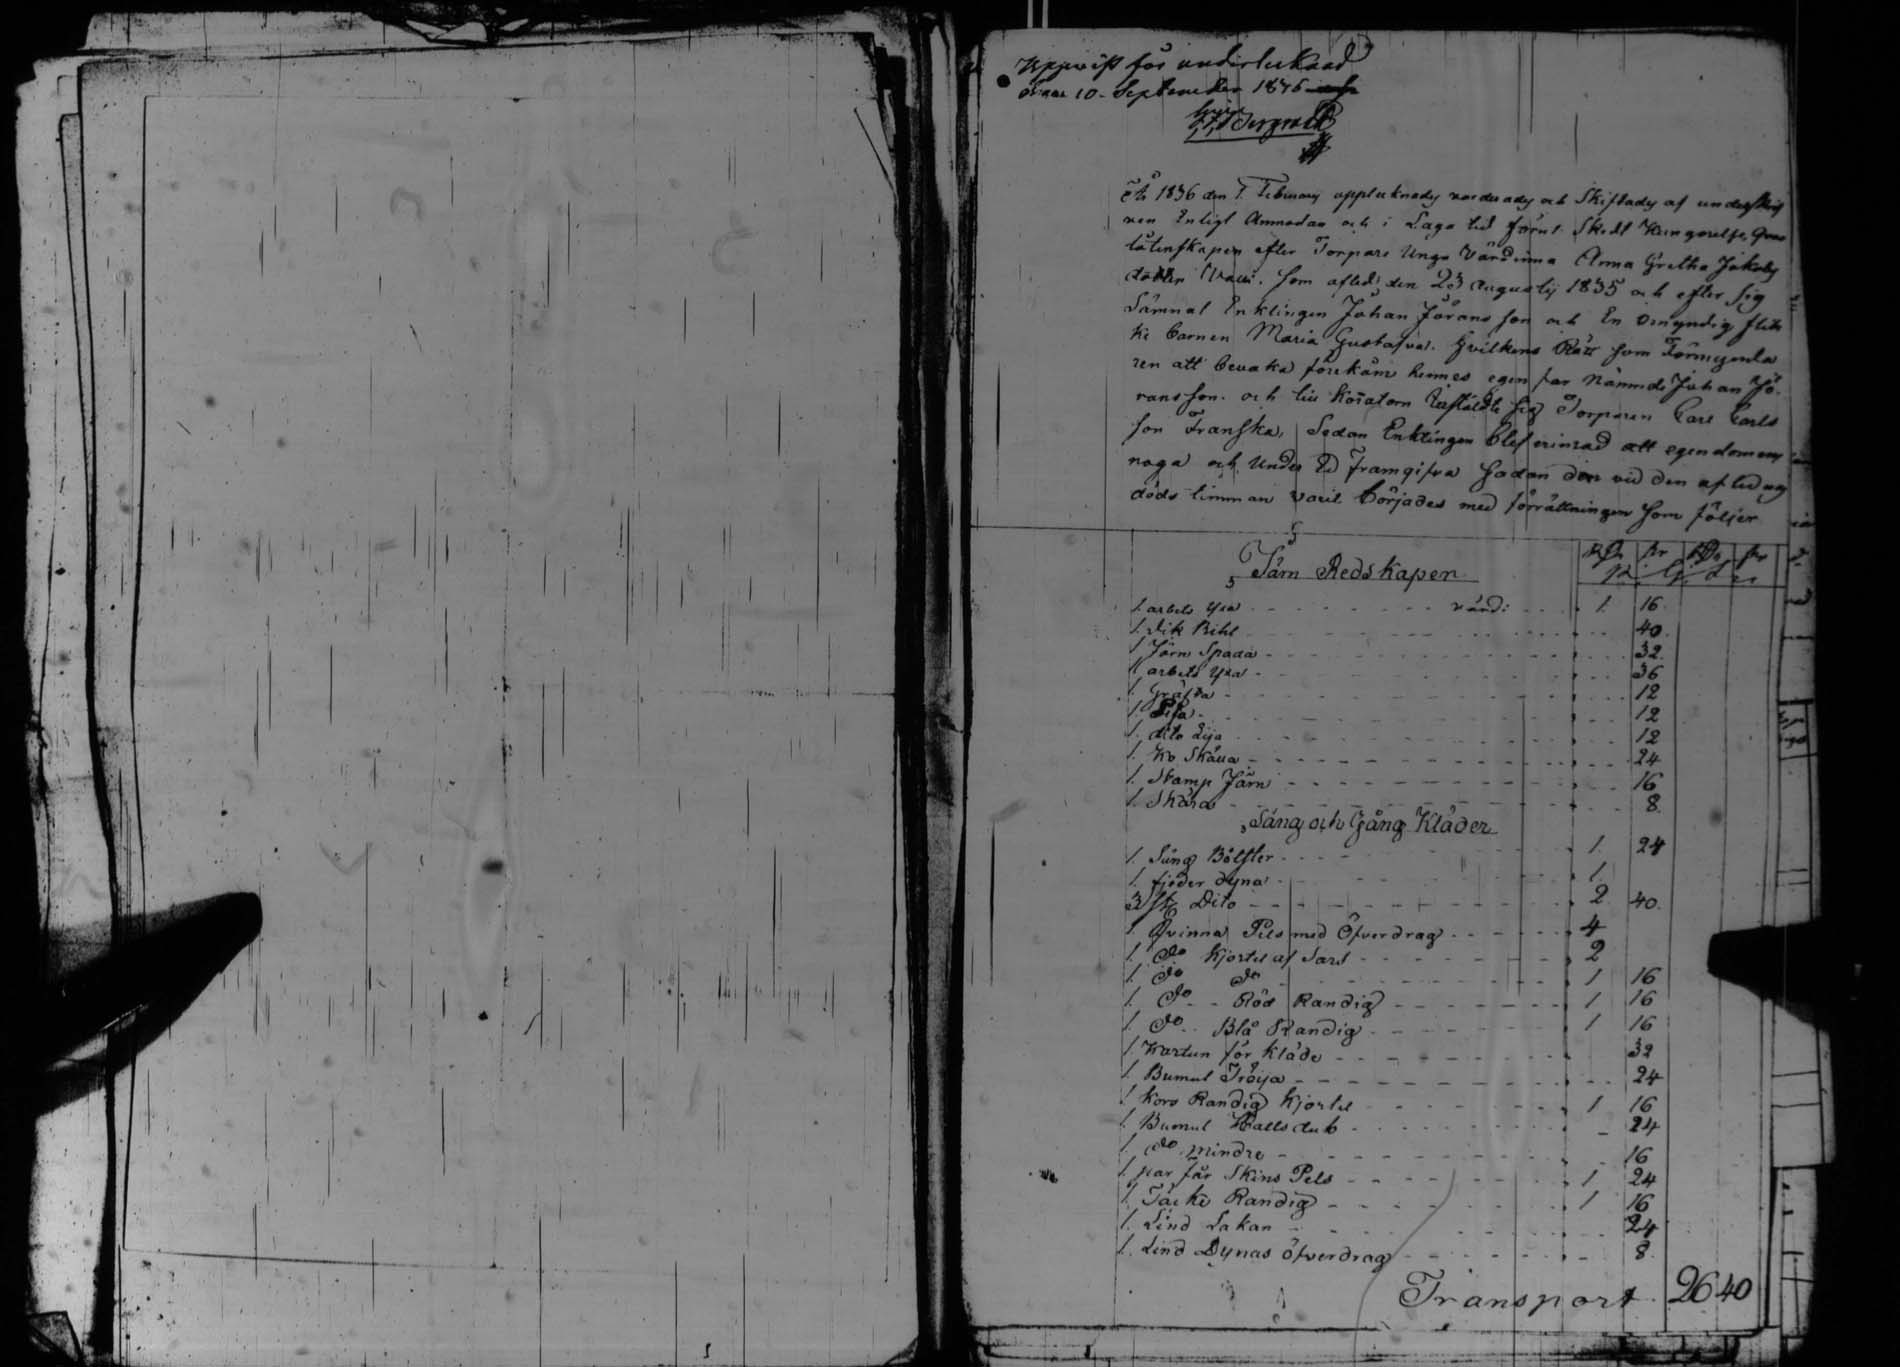 Uppvist för undertecknad
10. September 1846
År 1836 den 1. Februarij upptecknades värderades och Skiftades af underskrif
ven Enligt Anmodan och i Laga tid förut Skedt Kungörelse, Qvar
låtenskapen efter Torpare Unga Värdinna Anna Gretha Jakobs
dotter som afled den 23 Augustij 1835 och efter sig
Lämnat Enklingen Johan Jörans son och En omyndig flick
ke barnen Maria Gustafva. Hvilkens Rätt som Förmynda
ren att bevaka förekom hennes egen far Nämnde Johan Jö
rans son. och till Koratorn instälde sig Torparen Carl Carls
son Franska, Sedan Enklingen blef erinrad att egendomen
noga och Under Ed Framgifva Sådan den vid den aflednes
döds timman varit börjades med förrättningen som följer
Järn Redskapen
1. arbets Yxa värd: 1. 16.
1. Dik Bihl 40.
1 Järn Spada 32.
1 arbets Yxa 36
1. Gräfta 12
1. 12
1. dito Lija 12
1. Ko Skälla 24
1. Stamp Järn 16
1. Skära 8.
Säng och Gång Kläder
1. Säng Bolster 1. 24
1. fjeder dyna 1.
3 st Dito 2. 40.
1. Qvinna Pels med Öfverdrag 4
1. do Kjortel af Sars 2
1. do do 1 16
1. do Röd Randig 1 16
1. do Blå Randig 1 16
1. Kartun för kläde 32
1. Bumul Tröija 24
1 Kors Randig Kjortel 1 16
1. Bumul Halls duk 24
1. do mindre 16
1. par får Skins Pels 1 24
1. Täcke Randig 1 16
1. Lind Lakan 24
1. Lind Dynas öfverdrag 8.
Transport 26 40